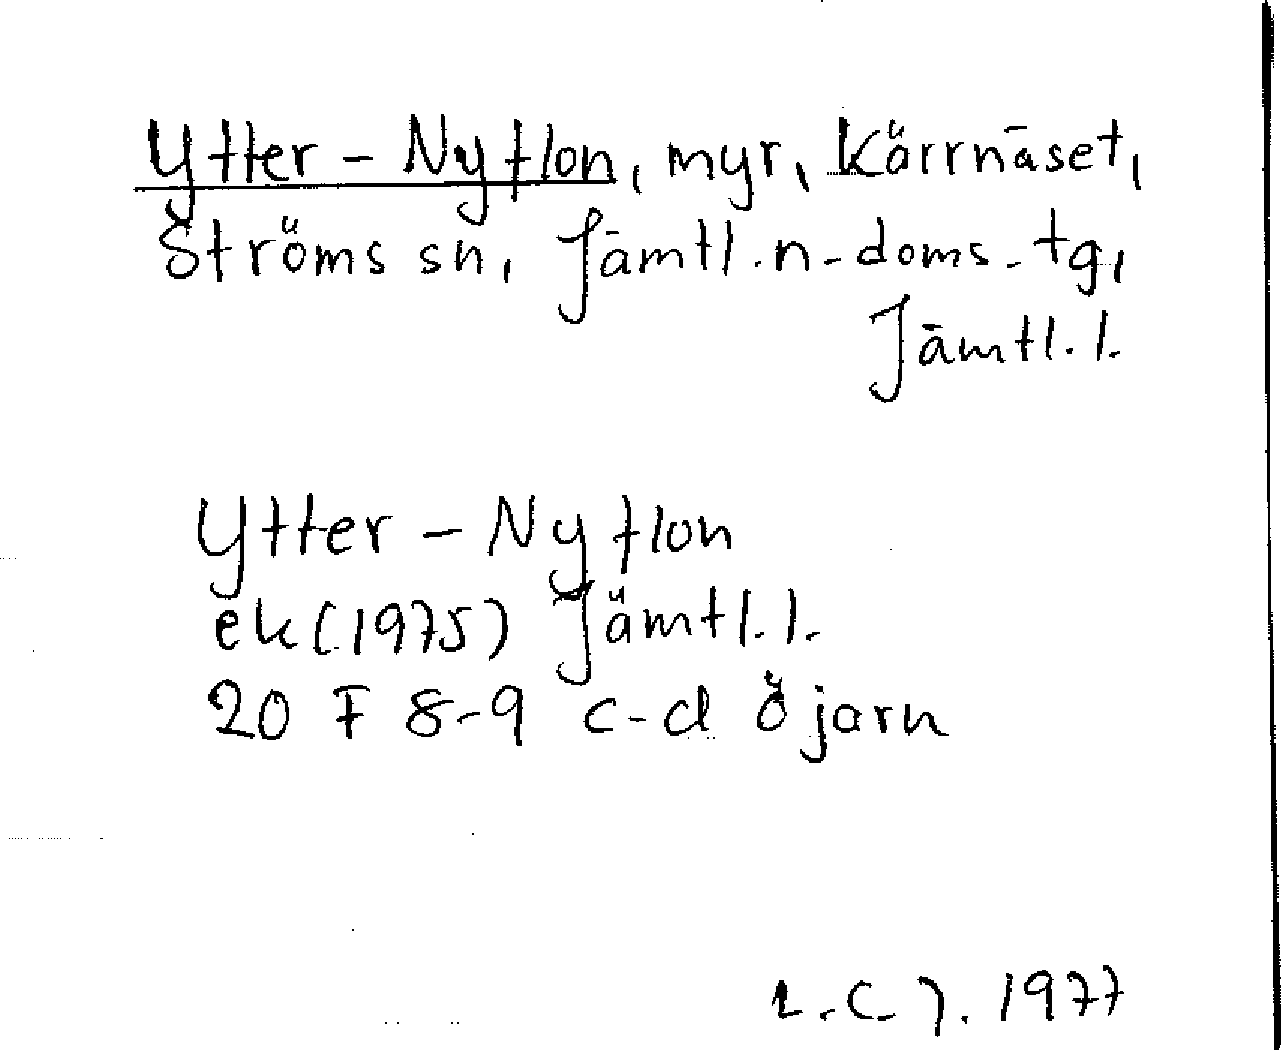 Ytter-Nyflon, myr, Kärrnäset,
Ströms sn, Jämtl.n-doms-tg,
Jämtl.l.
Ytter-Nyflon
ek(1975) Jämtl.l.
20 F 8-9 c-d Öjarn
1977